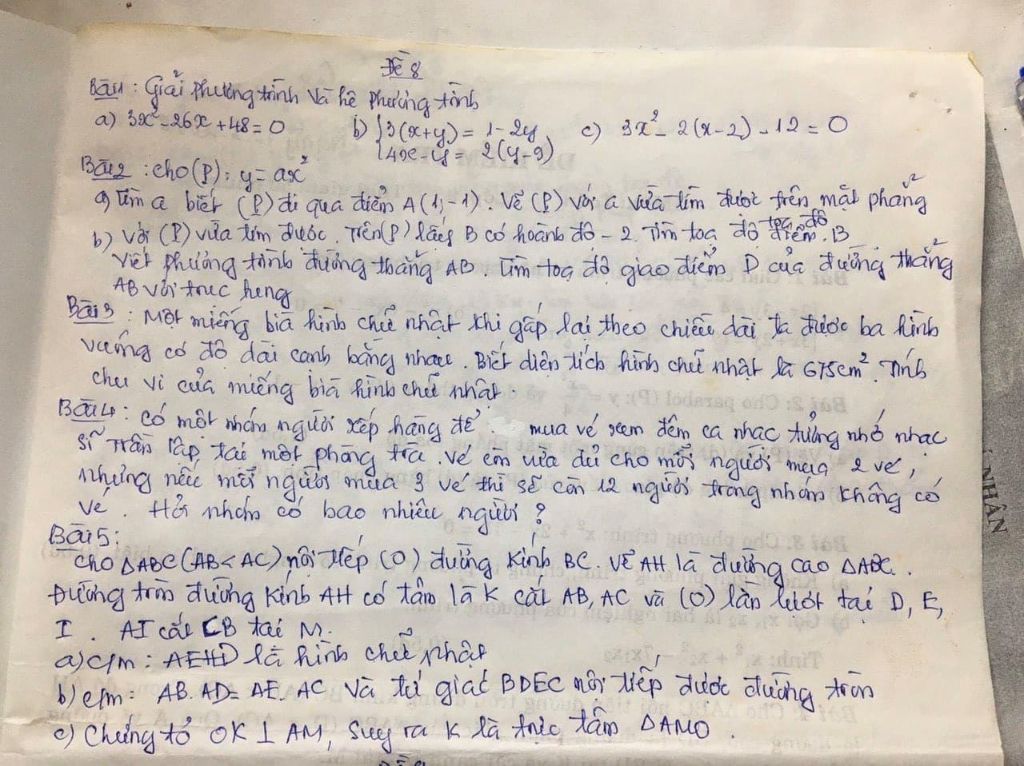 Đề 8
Bài 1: Giải phương trình và hệ phương trình
a) 3x² - 26x + 48 = 0 b) { 3(x+y) = 1 - 2y c) 3x² - 2(x-2) - 12 = 0
4x - y = 2(y-3)
Bài 2: cho (P): y = ax²
a) Tìm a biết (P) đi qua điểm A(1;-1). Vẽ (P) với a vừa tìm được trên mặt phẳng
tọa độ
b) Với (P) vừa tìm được. Trên (P) lấy B có hoành độ -2. Tìm toạ độ điểm B
Viết phương trình đường thẳng AB. Tìm toạ độ giao điểm D của đường thẳng
AB với trục tung
Bài 3: Một miếng bìa hình chữ nhật khi gấp lại theo chiều dài ta được ba hình
vuông có độ dài cạnh bằng nhau. Biết diện tích hình chữ nhật là 675cm². Tính
chu vi của miếng bìa hình chữ nhật.
Bài 4: Có một nhóm người xếp hàng để mua vé xem đêm ca nhạc tưởng nhớ nhạc
sĩ Trần Lập tại một phòng trà. Vé còn vừa đủ cho mỗi người mua 2 vé,
nhưng nếu mỗi người mua 3 vé thì sẽ còn 12 người trong nhóm không có
vé. Hỏi nhóm có bao nhiêu người?
Bài 5:
Cho ΔABC (AB < AC) nội tiếp (O) đường kính BC. Vẽ AH là đường cao ΔABC.
Đường tròn đường kính AH có tâm là K cắt AB, AC và (O) lần lượt tại D, E,
I. AI cắt CB tại M.
a) c/m: AEHD là hình chữ nhật
b) c/m: AB.AD = AE.AC và tứ giác BDEC nội tiếp được đường tròn
c) Chứng tỏ OK ⊥ AM, suy ra K là trực tâm ΔAMO.
NHÂN